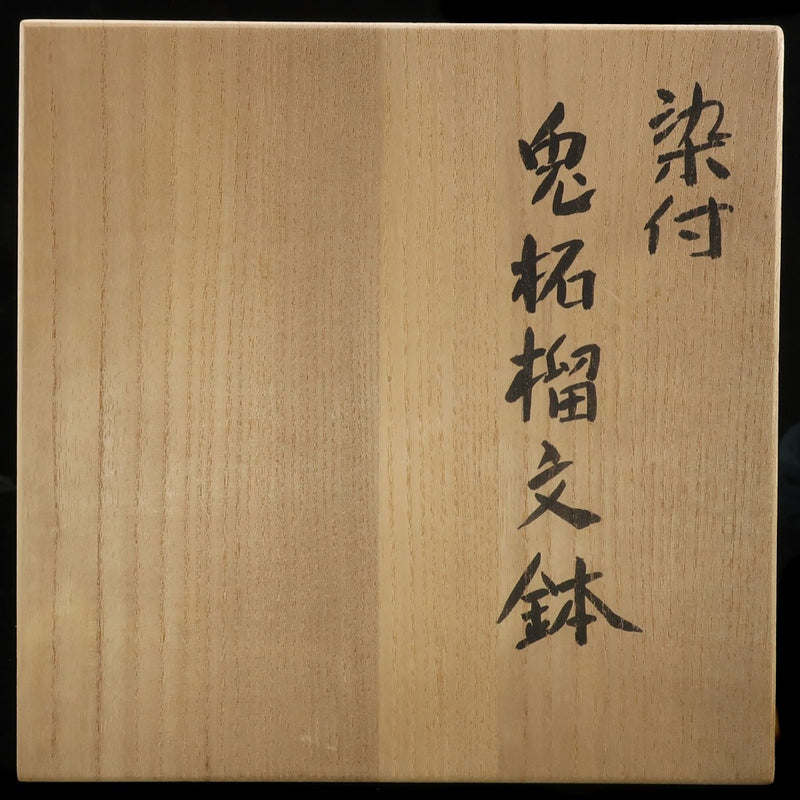 染付
鬼柘榴文鉢